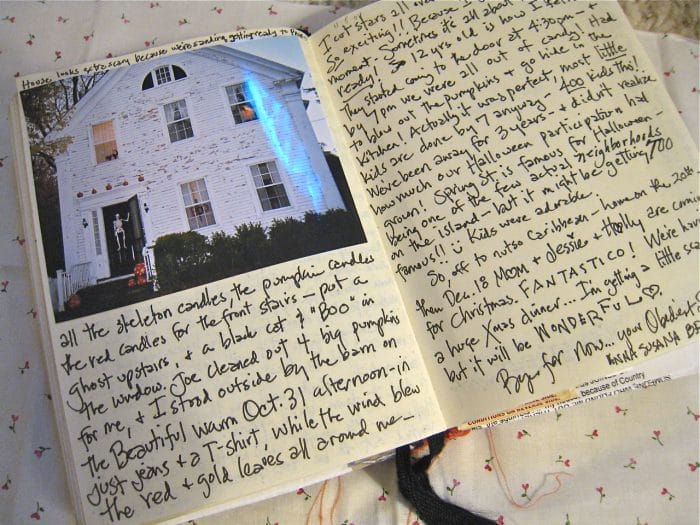 House looks extra scary because we're sanding getting ready to
all the skeleton candles, the pumpkin candles
the red candles for the front stairs – put a
ghost upstairs, + a black cat + "BOO" in
the window. Joe cleaned out 4 big pumpkins
for me, + I stood outside by the barn on
the Beautiful warm Oct. 31 afternoon – in
just jeans + a T-shirt, while the wind blew
the red + gold leaves all around me –
I cut stars all over
So exciting!! Because I
moment. Sometimes it's all about
ready! So 12 yrs old is how I
They started coming to the door at 4:30pm +
by 7pm we were all out of candy! Had
to blow out the pumpkins + go hide in the
kitchen! Actually it was perfect, most little
kids are done by 7 anyway – 400 kids this!
We've been away for 3 years – + didn't realize
how much our Halloween participation had
grown! Spring St. is famous for Halloween –
being one of the few actual neighborhoods
on the island – but it might be getting TOO
famous!! Kids were adorable.
So, off to nutso Caribbean – home on the 20th –
then Dec. 18 Mom + Jessie + Holly are coming
for Christmas. FANTASTICO! We're having
a huge Xmas dinner... I'm getting a little
but it will be WONDERFUL ♡
Bye for now... your Obedient
ANNA SUSANA
CONDITIONS ON REVERSE SIDE.
because of Country